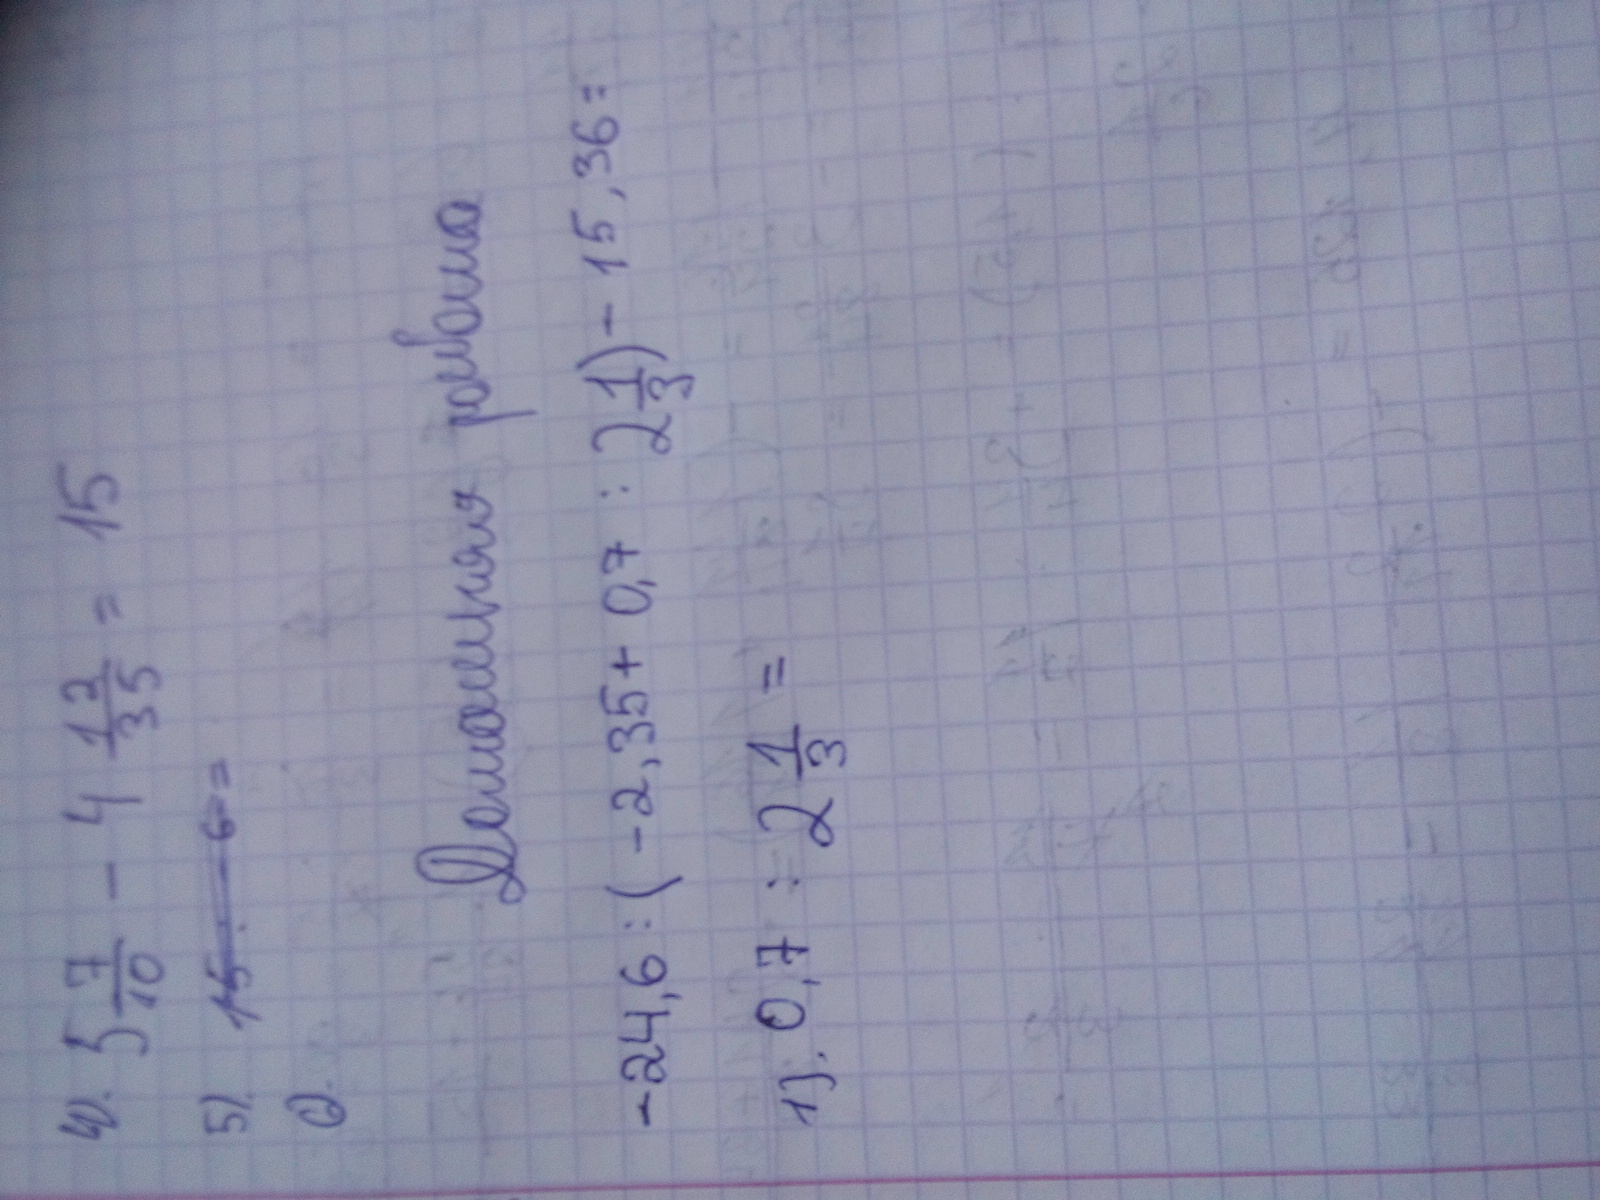 4). 5 7/10 - 4 12/35 = 15
5). 15 : 6 =
Домашняя работа
-24,6 : ( -2,35 + 0,7 : 2 1/3 ) - 15,36 =
1). 0,7 : 2 1/3 =